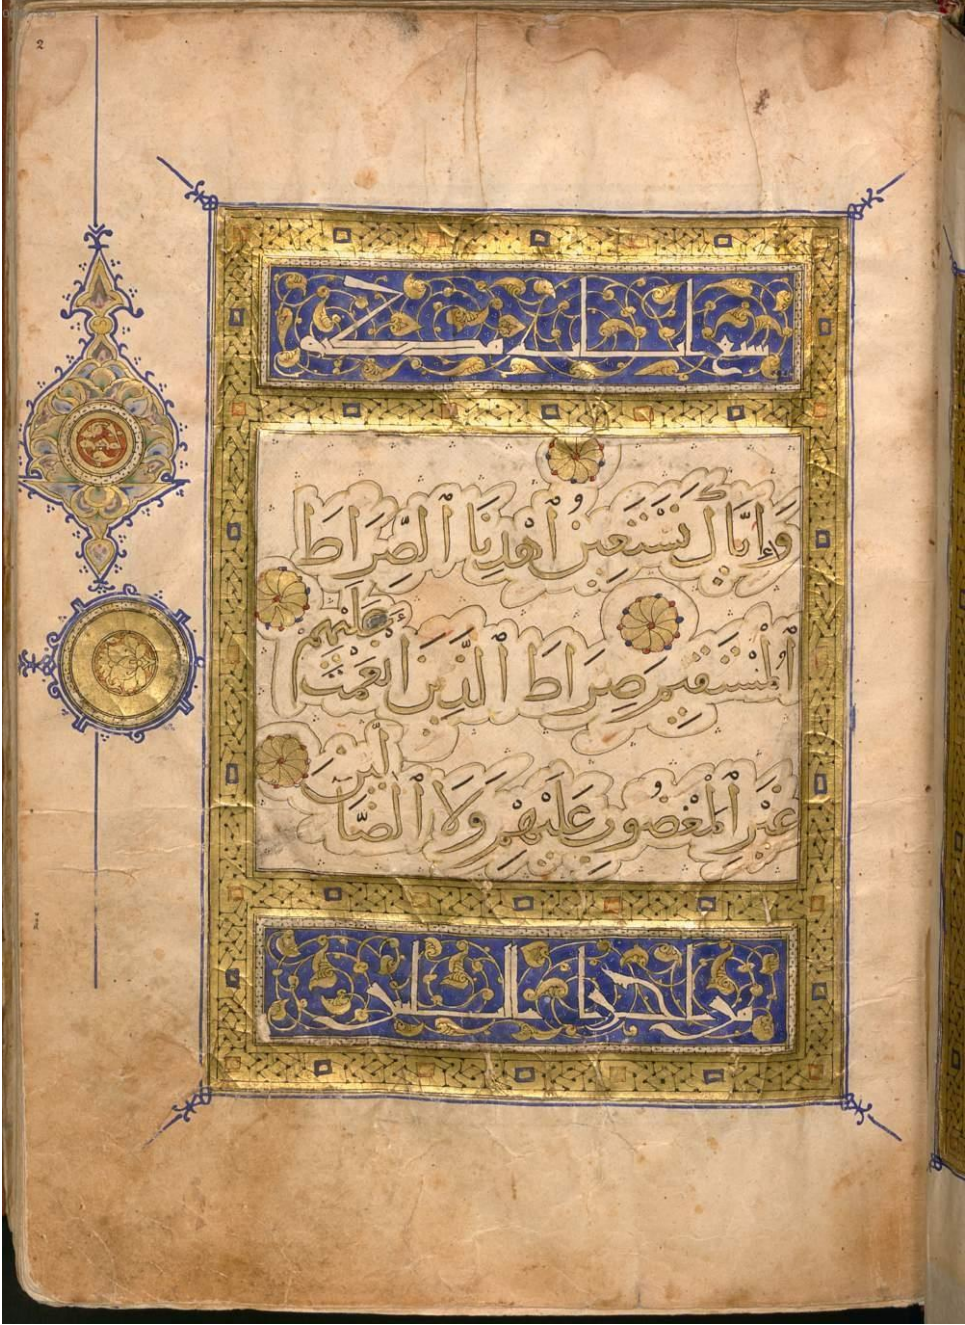 2
سبع ايات مكية
وَإِيَّاكَ نَسْتَعِينُ ٱهْدِنَا ٱلصِّرَاطَ
ٱلْمُسْتَقِيمَ صِرَاطَ ٱلَّذِينَ أَنْعَمْتَ عَلَيْهِمْ
غَيْرِ ٱلْمَغْضُوبِ عَلَيْهِمْ وَلَا ٱلضَّالِّينَ